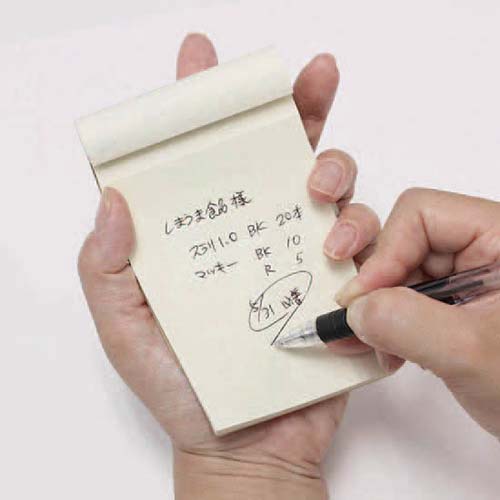 しまうま食品様
スラリ1.0 BK 20本
マッキー BK 10
R 5
5/31